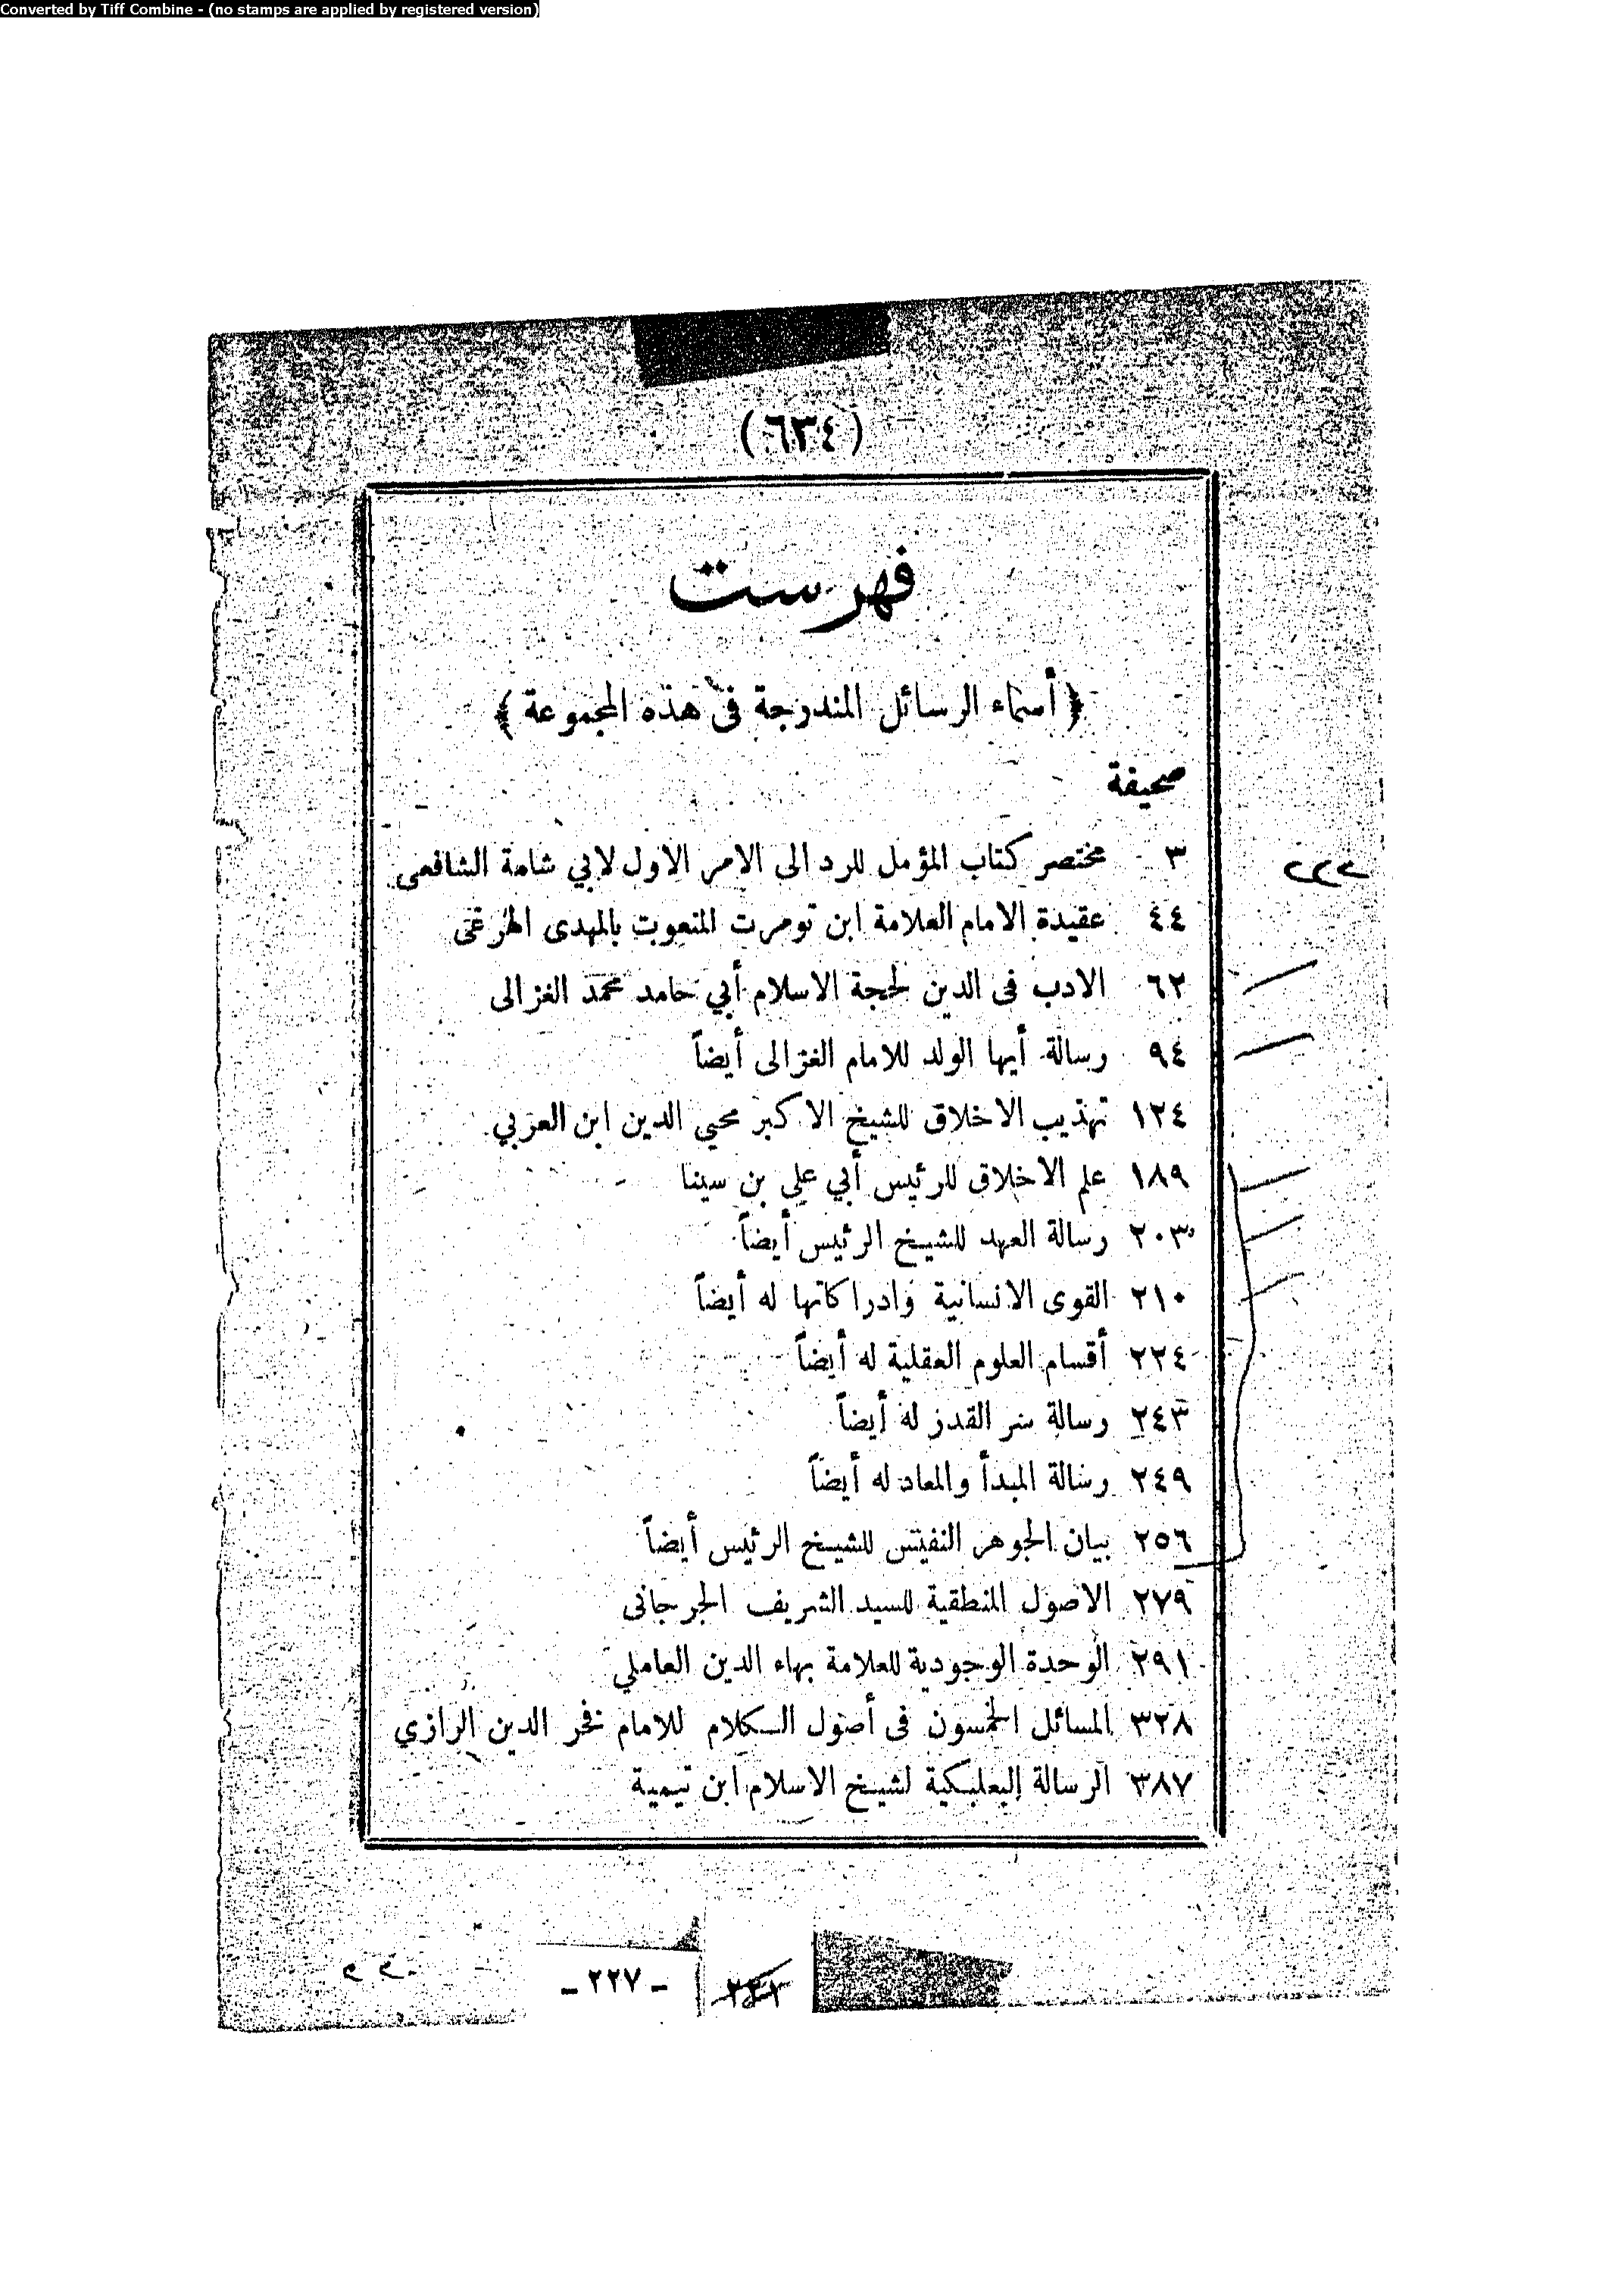 Converted by Tiff Combine - (no stamps are applied by registered version)
(٦٣٤)
فهرست
﴿ أسماء الرسائل المندرجة فى هذه المجموعة ﴾
صحيفة
٣ مختصر كتاب المؤمل للرد الى الامر الاول لابي شامة الشافعى
٤٤ عقيدة الامام العلامة ابن تومرت المنعوت بالمهدى الهرغى
٦٢ الادب فى الدين لحجة الاسلام أبي حامد محمد الغزالى
٩٤ رسالة أيها الولد للامام الغزالى أيضاً
١٢٤ تهذيب الاخلاق للشيخ الاكبر محيي الدين ابن العربي
١٨٩ علم الاخلاق للرئيس أبي علي بن سينا
٢٠٣ رسالة العهد للشيخ الرئيس أيضاً
٢١٠ القوى الانسانية وادراكاتها له أيضاً
٢٢٤ أقسام العلوم العقلية له أيضاً
٢٤٣ رسالة سر القدر له أيضاً
٢٤٩ رسالة المبدأ والمعاد له أيضاً
٢٥٦ بيان الجوهر النفيس للشيخ الرئيس أيضاً
٢٧٩ الاصول المنطقية للسيد الشريف الجرجانى
٢٩١ الوحدة الوجودية للعلامة بهاء الدين العاملي
٣٢٨ المسائل الخمسون فى أصول الكلام للامام فخر الدين الرازي
٣٨٧ الرسالة البعلبكية لشيخ الاسلام ابن تيمية
- ٢٢٧ -